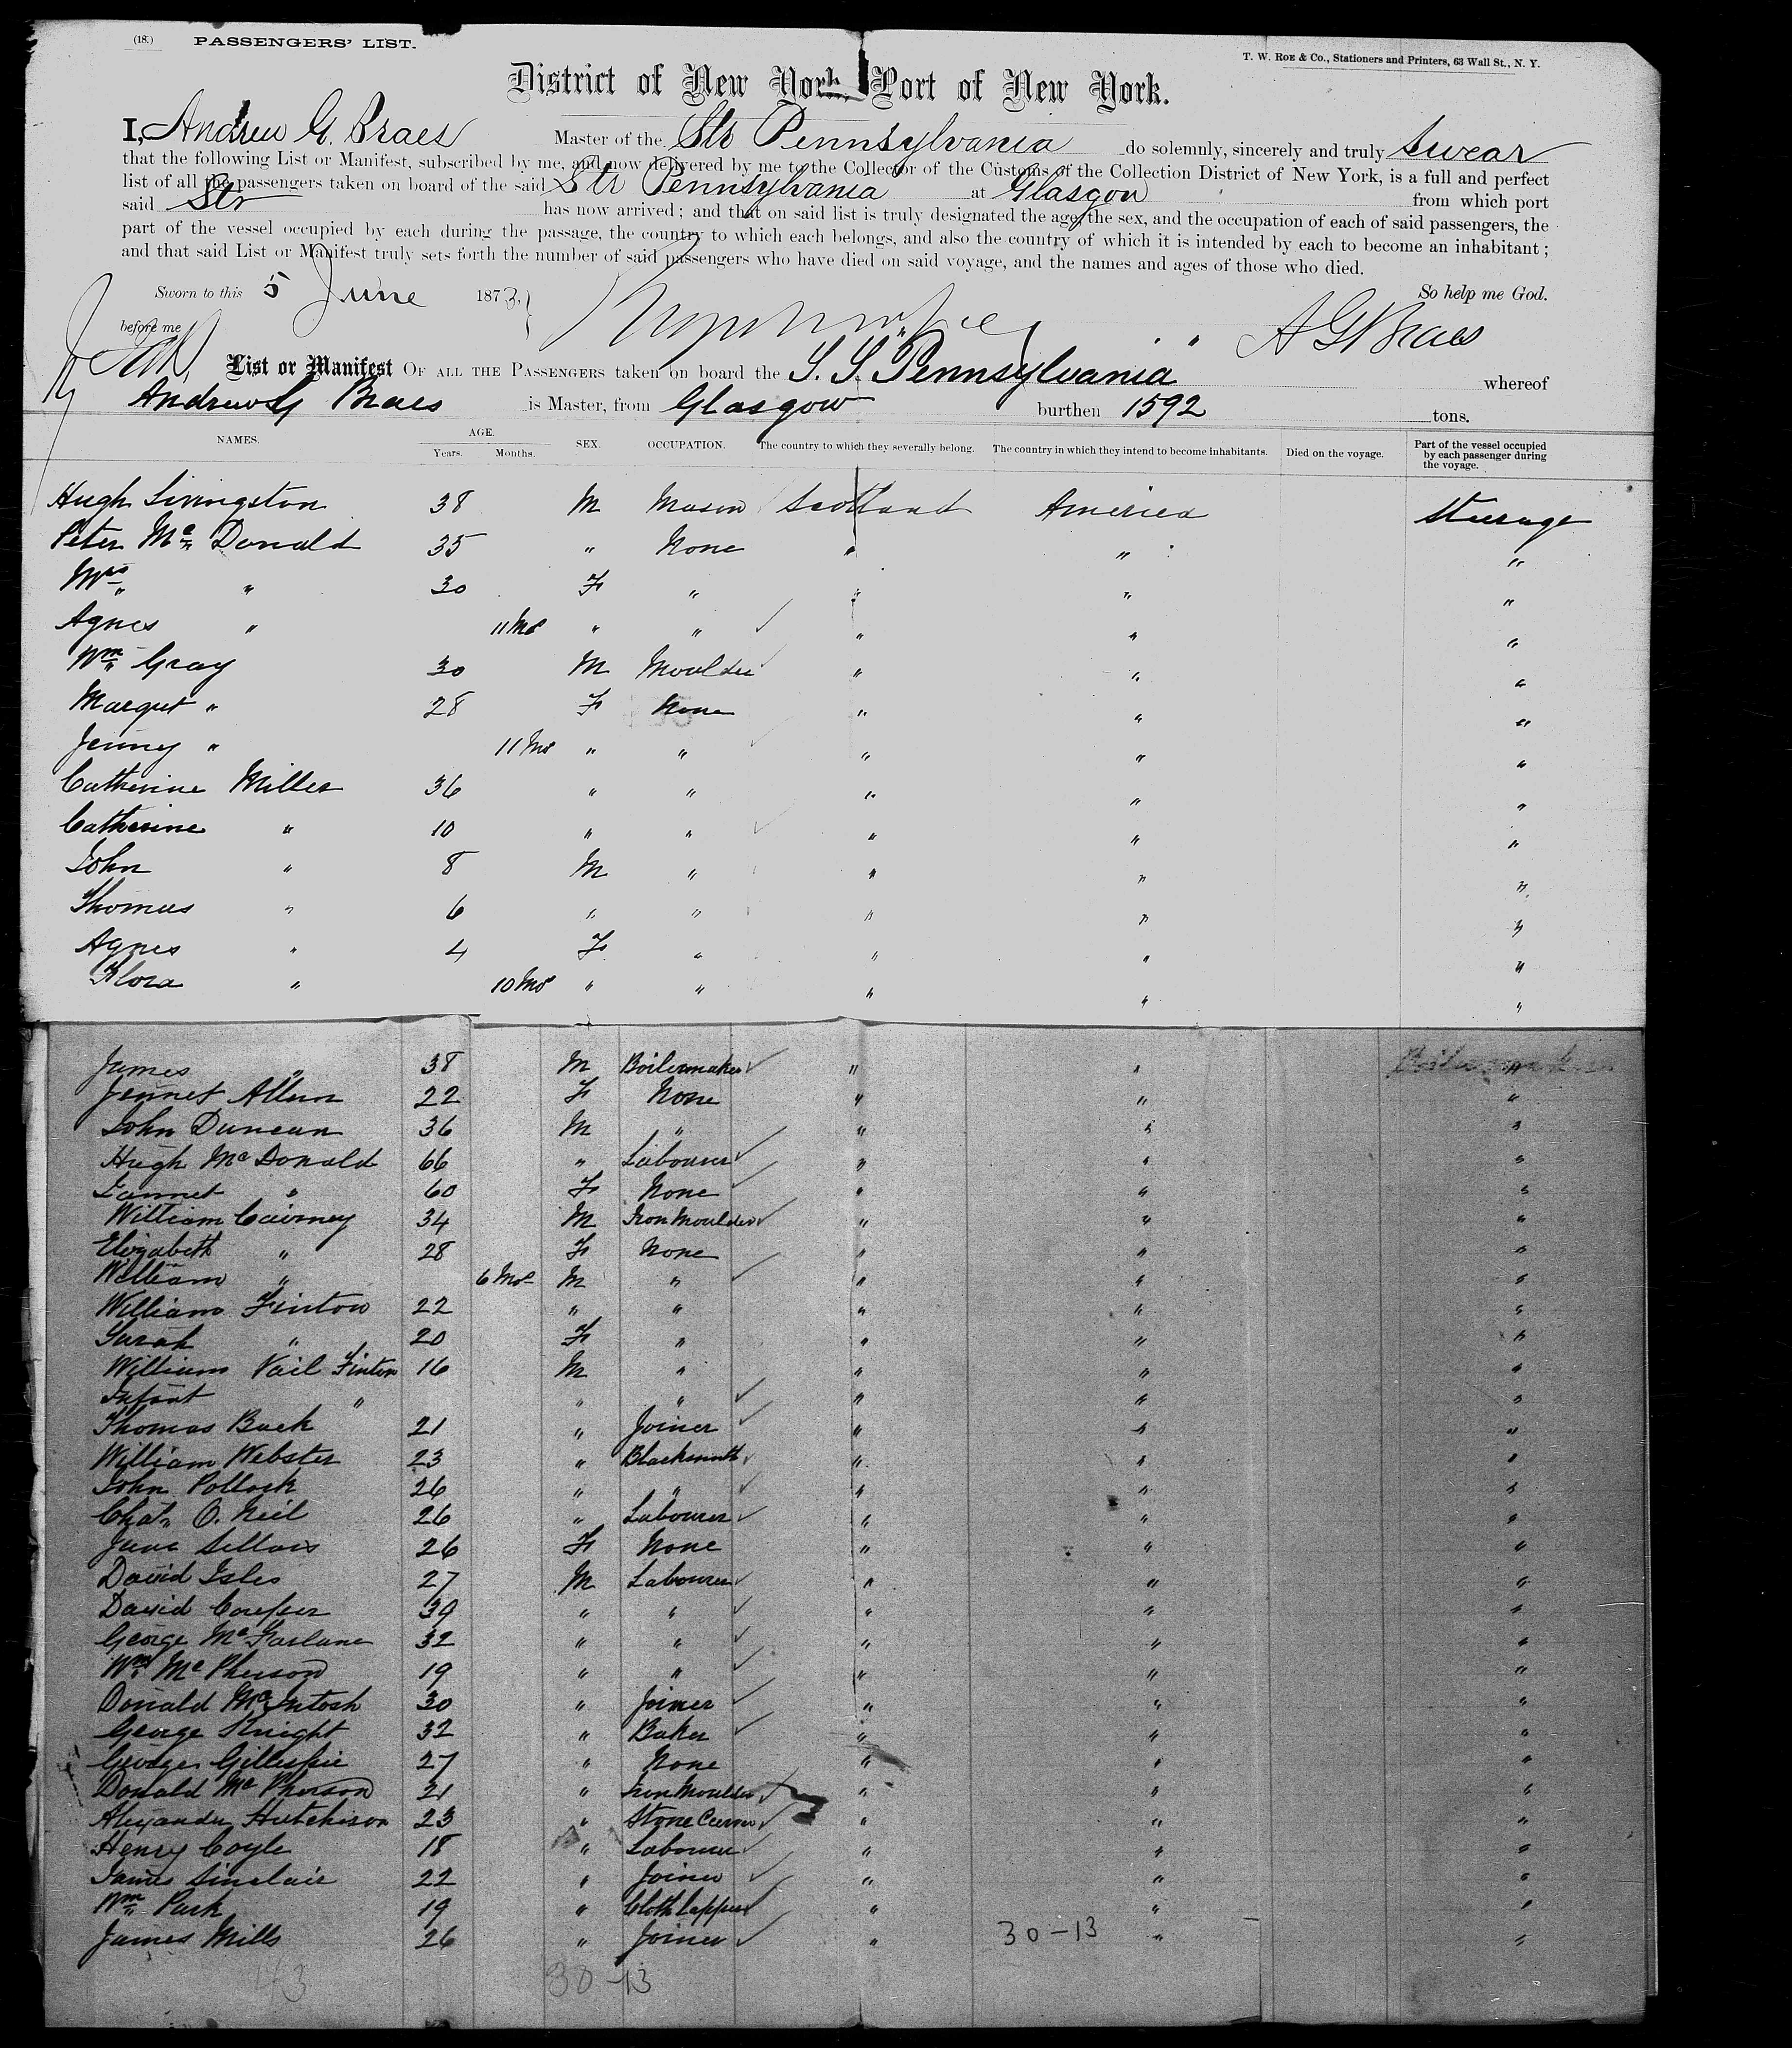 (18.) PASSENGERS' LIST.
T. W. Roe & Co., Stationers and Printers, 63 Wall St., N. Y.
District of New York, Port of New York.
I, Andrew G. Braes Master of the Str Pennsylvania do solemnly, sincerely and truly swear
that the following List or Manifest, subscribed by me, and now delivered by me to the Collector of the Customs of the Collection District of New York, is a full and perfect
list of all the passengers taken on board of the said Str Pennsylvania at Glasgow from which port
said Str has now arrived; and that on said list is truly designated the age, the sex, and the occupation of each of said passengers, the
part of the vessel occupied by each during the passage, the country to which each belongs, and also the country of which it is intended by each to become an inhabitant;
and that said List or Manifest truly sets forth the number of said passengers who have died on said voyage, and the names and ages of those who died.
Sworn to this 5 June 1873, So help me God.
before me A G Braes
List or Manifest Of all the Passengers taken on board the S. S. "Pennsylvania" whereof
Andrew G Braes is Master, from Glasgow burthen 1592 tons.
NAMES. AGE. Years. Months. SEX. OCCUPATION. The country to which they severally belong. The country in which they intend to become inhabitants. Died on the voyage. Part of the vessel occupied by each passenger during the voyage.
Hugh Livingston 38 M Mason Scotland America Steerage
Peter McDonald 35 " None " " "
Mrs " 30 F " " " "
Agnes " 11 Mos " " " " "
Wm Gray 30 M Moulder " " "
Margret " 28 F None " " "
Jenny " 11 Mos " " " " "
Catherine Miller 36 " " " " "
Catherine " 10 " " " " "
John " 8 M " " " "
Thomas " 6 " " " " "
Agnes " 4 F " " " "
Flora " 10 Mos " " " " "
James " 38 M Boilermaker " " "
Jennet Allan 22 F None " " "
John Duncan 36 M " " " "
Hugh McDonald 66 " Labourer " " "
Jannet " 60 F None " " "
William Cairney 34 M Iron Moulder " " "
Elizabeth " 28 F None " " "
William " 6 Mos M " " " "
William Finton 22 " " " " "
Sarah " 20 F " " " "
William Vail Finton 16 M " " " "
Infant " " " " " "
Thomas Back 21 " Joiner " " "
William Webster 23 " Blacksmith " " "
John Pollock 26 " " " " "
Chas O. Neil 26 " Labourer " " "
Jane Sellars 26 F None " " "
David Isles 27 M Labourer " " "
David Cowper 39 " " " " "
George McFarlane 32 " " " " "
Wm McPherson 19 " " " " "
Donald McIntosh 30 " Joiner " " "
George Knight 32 " Baker " " "
George Gillespie 27 " None " " "
Donald McPherson 21 " Iron Moulder " " "
Alexander Hutchison 23 " Stone " " "
Henry Coyle 18 " Labourer " " "
James Sinclair 22 " Joiner " " "
Wm Park 19 " Cloth Lapper " " "
James Mills 26 " Joiner " 30-13 " "
143 30-13